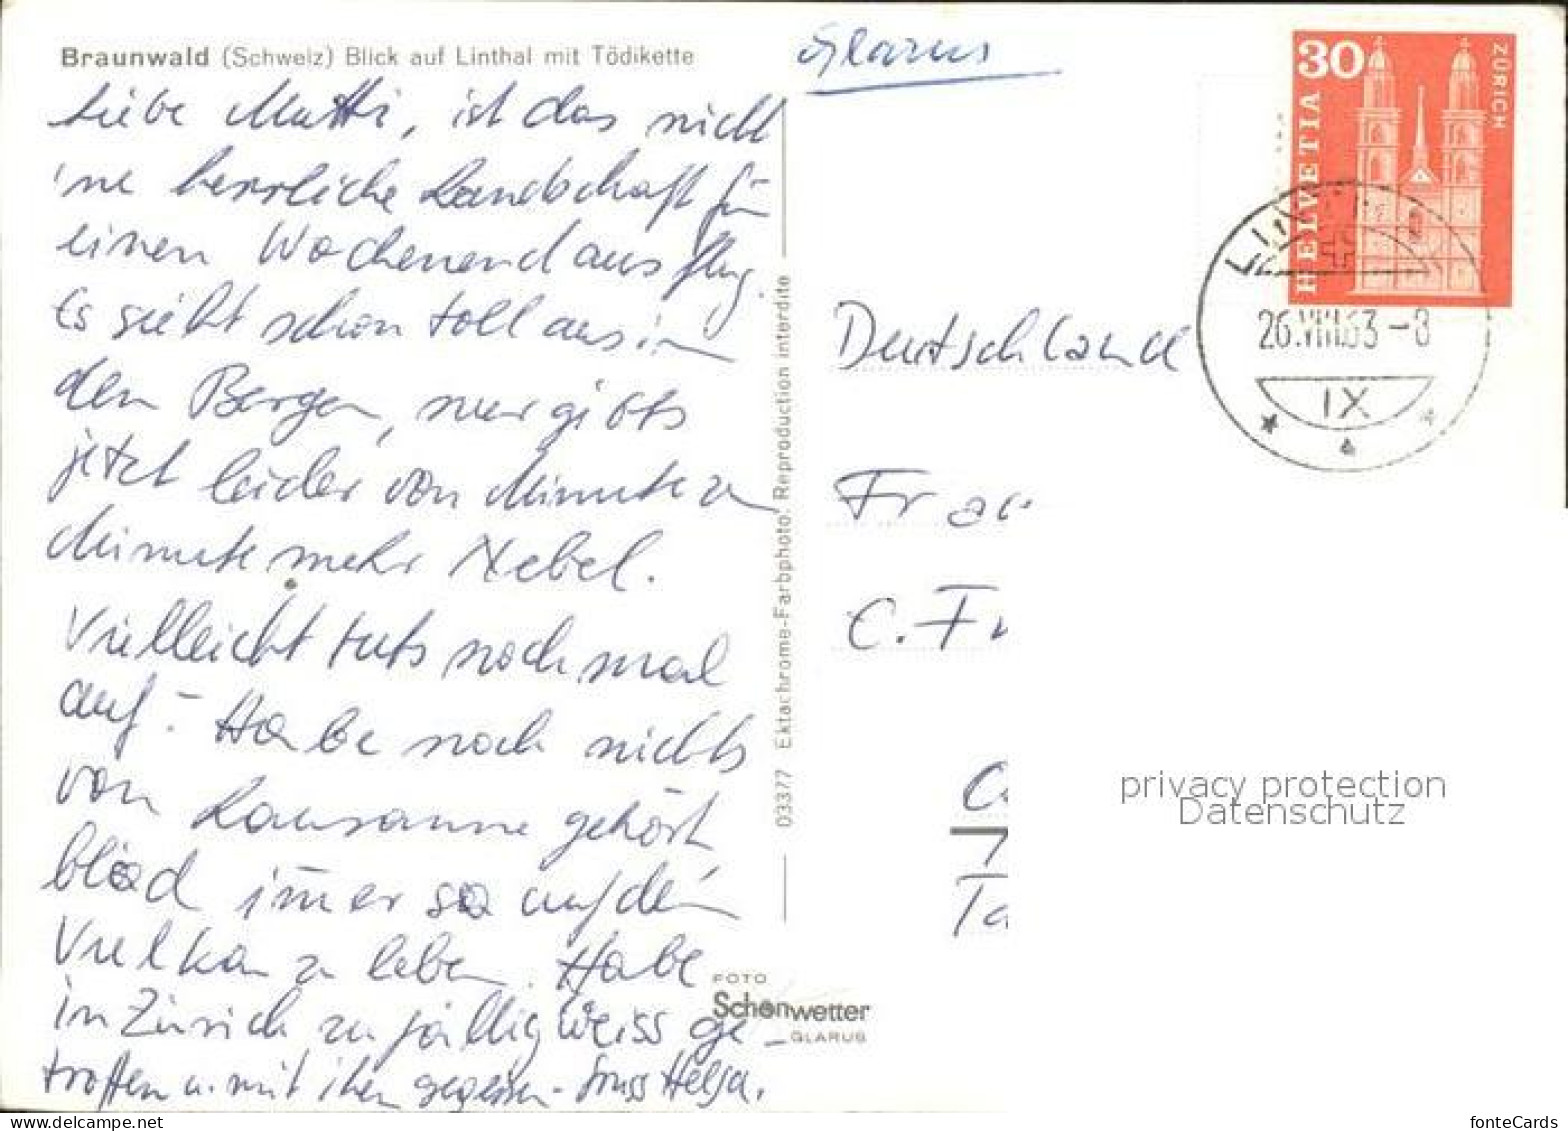 Braunwald (Schweiz) Blick auf Linthal mit Tödikette
Liebe Mutti, ist das nicht
'ne herrliche Landschaft für
einen Wochenendausflug.
Es sieht schon toll aus in
den Bergen, nur gibts
jetzt leider von Minute zu
Minute mehr Nebel.
Vielleicht tuts nochmal
auf. - Habe noch nichts
von Lausanne gehört
blöd immer so auf dem
Vulkan zu leben. Habe
in Zürich zufällig Weiss ge-
troffen u. mit ihm gegessen - Gruss Helga.
03377 Ektachrome-Farbphoto. Reproduction interdite
FOTO
Schönwetter
GLARUS
Glarus
30
HELVETIA
ZÜRICH
26.VIII.63-8
IX
Deutschland
Frau
C. Fr
7
Ta
privacy protection
Datenschutz
fonteCards